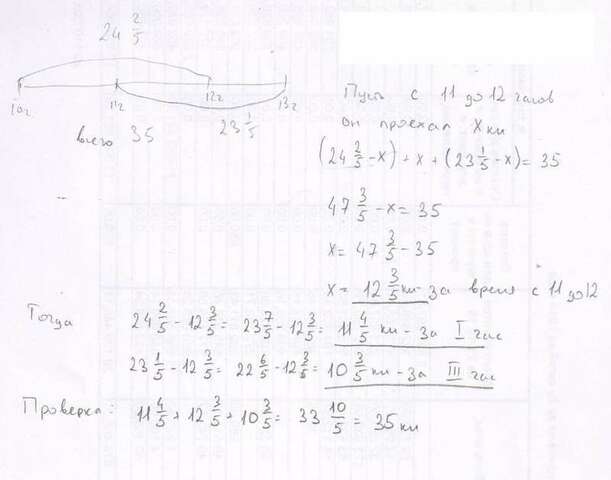 24 2/5
10ч 11ч 12ч 13ч
всего 35 23 1/5
Пусть с 11 до 12 часов
он проехал X км
(24 2/5 - x) + x + (23 1/5 - x) = 35
47 3/5 - x = 35
x = 47 3/5 - 35
x = 12 3/5 км - за время с 11 до 12
Тогда 24 2/5 - 12 3/5 = 23 7/5 - 12 3/5 = 11 4/5 км - за I час
23 1/5 - 12 3/5 = 22 6/5 - 12 3/5 = 10 3/5 км - за III час
Проверка: 11 4/5 + 12 3/5 + 10 3/5 = 33 10/5 = 35 км